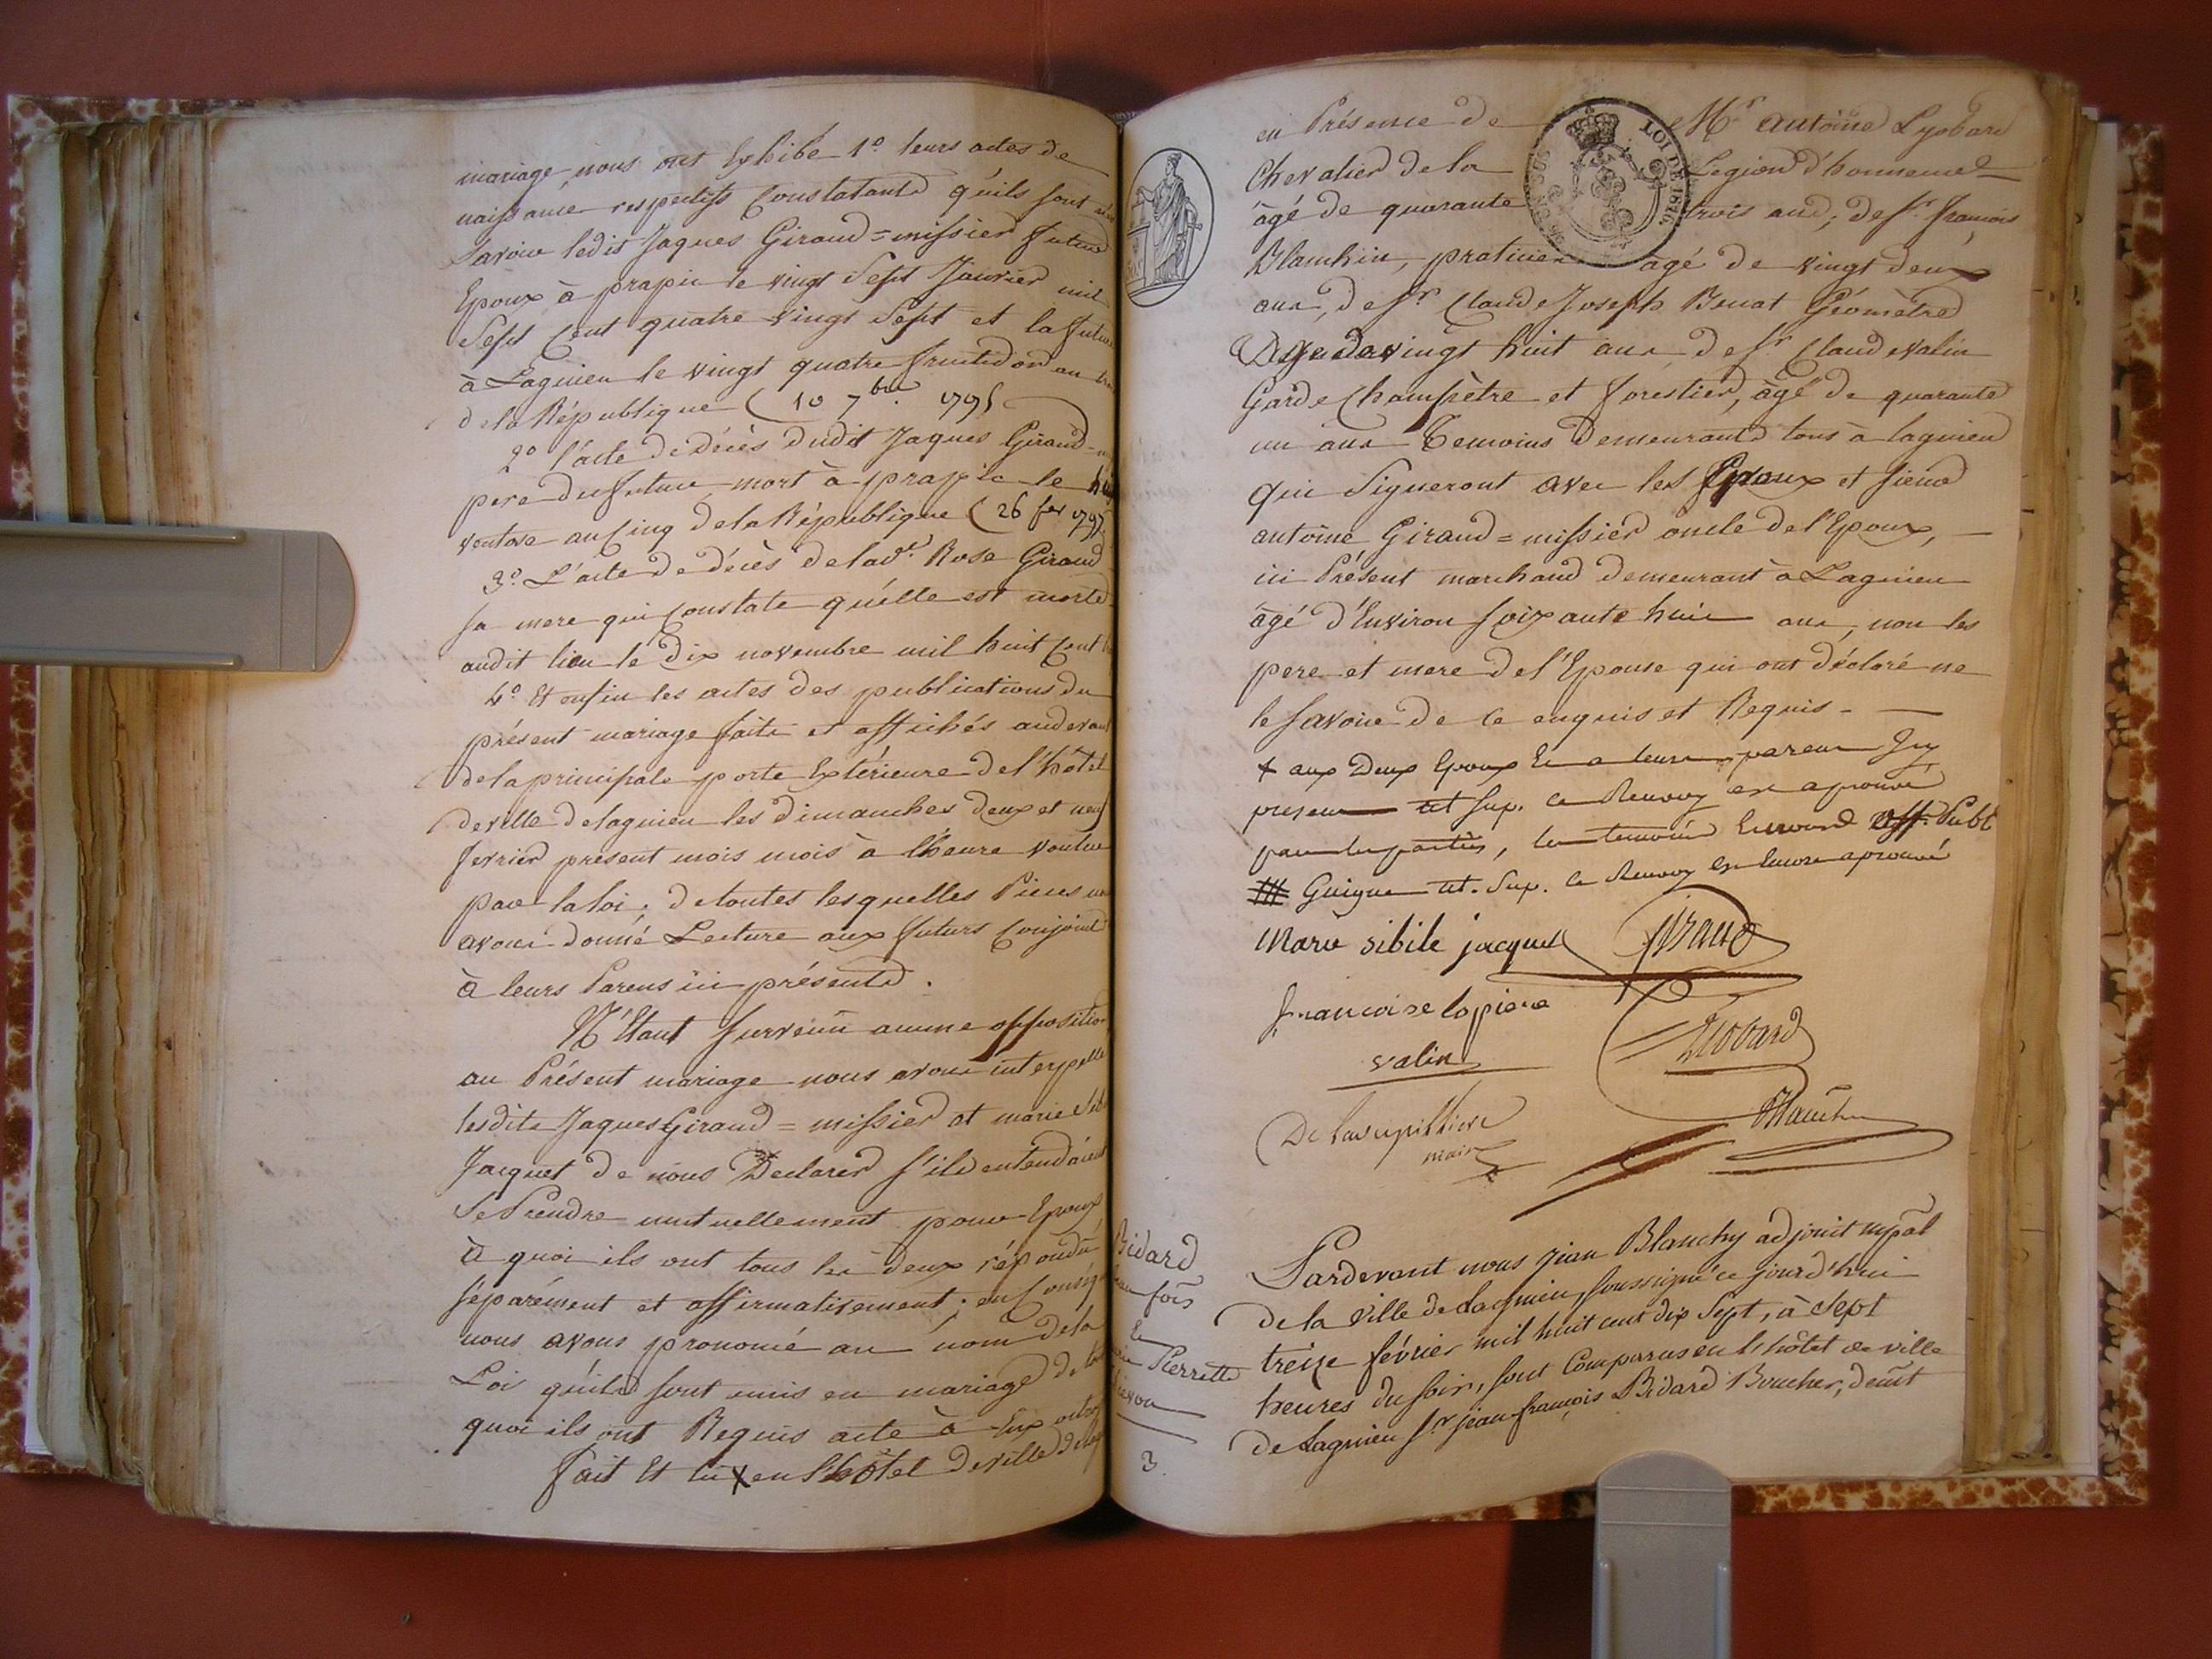 mariage, nous ont Exhibe 1o leurs actes de
naissance respectifs Constatants qu'ils sont nés
Savoir ledit Jaques Giraud=missier futur
Epoux à prapic le vingt Sept Janvier mil
Sept Cent quatre vingt Sept et la future
à Lagnieu le vingt quatre fructidor an
de la République (10 7bre 1795
2o l'acte de décès dudit Jaques Giraud=
pere du future mort à prapic le
ventose an Cinq de la République (26 fer 1797
3o L'acte de décès de lad.e Rose Giraud
sa mere qui Constate qu'elle est morte
audit lieu le dix novembre mil huit Cent
4o Et enfin les actes des publications du
présent mariage faits et affichés audevant
de la principale porte Extérieure de l'hôtel
deville de lagnieu les dimanches deux et neuf
fevrier présent mois mois à l'heure voulue
par la loi, de toutes lesquelles Pieces
avons donné Lecture aux futurs Conjoints
à leurs Parens ici présents.
N'Etant survenu aucune opposition
au Présent mariage nous avons interpellé
lesdits Jaques Giraud=missier et marie
Jacquet de nous Declarer s'ils entendaient
Se Prendre mutuellement pour Epoux
à quoi ils ont tous les deux répondu
séparément et affirmativement; en
nous avons prononcé au nom de la
Loi qu'ils sont unis en mariage de
quoi ils ont Requis acte à Eux
fait Et lu x en l'hôtel deville de
en Présence de Mr antoine Lyobard
Chevalier de la Legion d'honneur
âgé de quarante trois ans, de Sr françois
Blanchin, praticien âgé de vingt deux
ans, de Sr Claude Joseph Benat Géomètre
Age de vingt huit ans, de Sr Claude valin
Garde Champètre et forestier, âgé de quarante
un ans Temoins Demeurants tous à lagnieu
qui Signeront avec les Epoux et sieur
antoine Giraud=missier oncle de l'Epoux,
ici Présent marchand demeurant à Lagnieu
âgé d'Environ soixante huit ans, non les
pere et mere de l'Epouse qui ont déclaré ne
le savoir de ce enquis et Requis
x aux Deux Epoux Et a leurs parens Icy
presens ut sup. ce Renvoy est aprouvé
par les parties, les temoins Off. Publ
ut. Sup. ce Renvoy est Encore aprouvé
Marie sibile jacquet Giraud
francoise lapiere
Lyobard
valin
Blanchin
De lavupilliere
maire
LOI DE 1816.
Bidard
fois
Et
Pierrette
3.
Pardevant nous jean Blanchy adjoint mpal
de la ville de Lagnieu, soussigné ce jourd'hui
treize février mil huit cent dix Sept, à Sept
heures du soir, sont Comparus en l'hôtel de ville
de Lagnieu Sr jean françois Bidard Boucher, demt